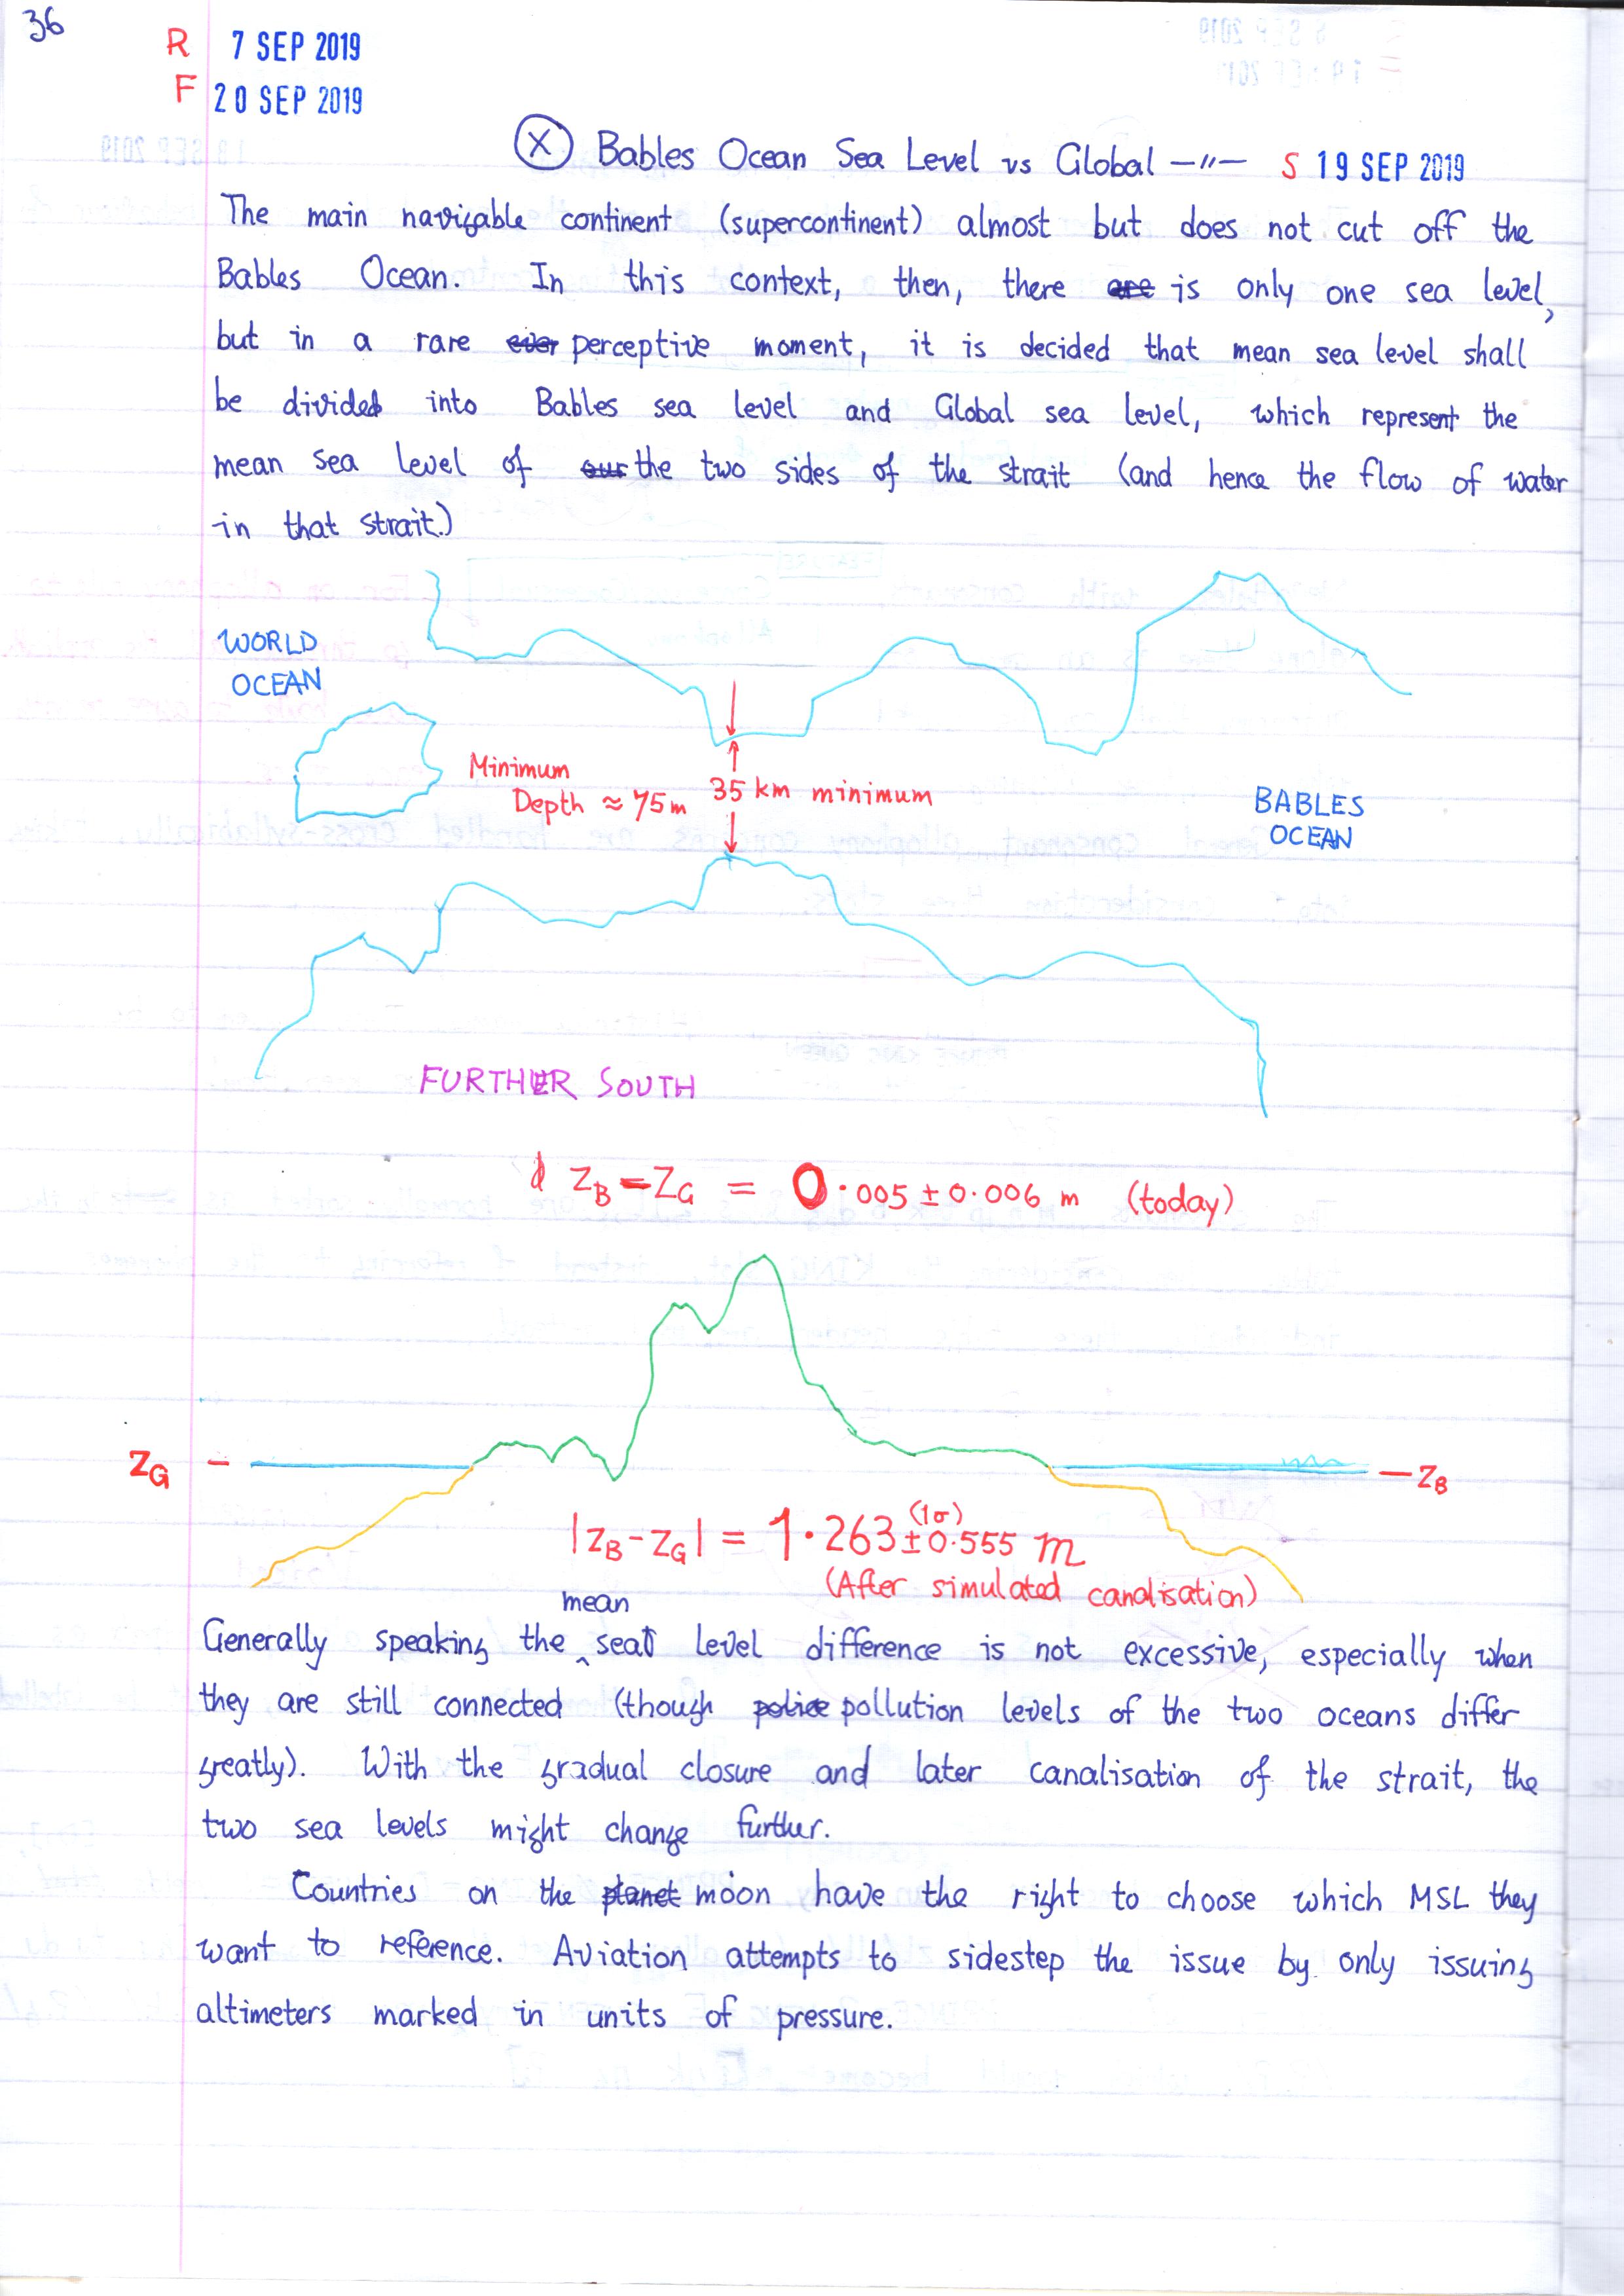 36
R 7 SEP 2019
F 20 SEP 2019
(X) Bables Ocean Sea Level vs Global —〃— S 19 SEP 2019
The main navigable continent (supercontinent) almost but does not cut off the
Bables Ocean. In this context, then, there are is only one sea level,
but in a rare ever perceptive moment, it is decided that mean sea level shall
be divided into Bables sea level and Global sea level, which represent the
mean sea level of our the two sides of the strait (and hence the flow of water
in that strait.)
WORLD
OCEAN
Minimum
Depth ≈ 75m
35 km minimum
BABLES
OCEAN
FURTHER SOUTH
Z_B - Z_G = 0.005 ± 0.006 m (today)
Z_G
Z_B
|Z_B - Z_G| = 1.263 ± 0.555 m (1σ)
(After simulated canalisation)
Generally speaking the mean sea level difference is not excessive, especially when
they are still connected (though police pollution levels of the two oceans differ
greatly). With the gradual closure and later canalisation of the strait, the
two sea levels might change further.
Countries on the planet moon have the right to choose which MSL they
want to reference. Aviation attempts to sidestep the issue by only issuing
altimeters marked in units of pressure.